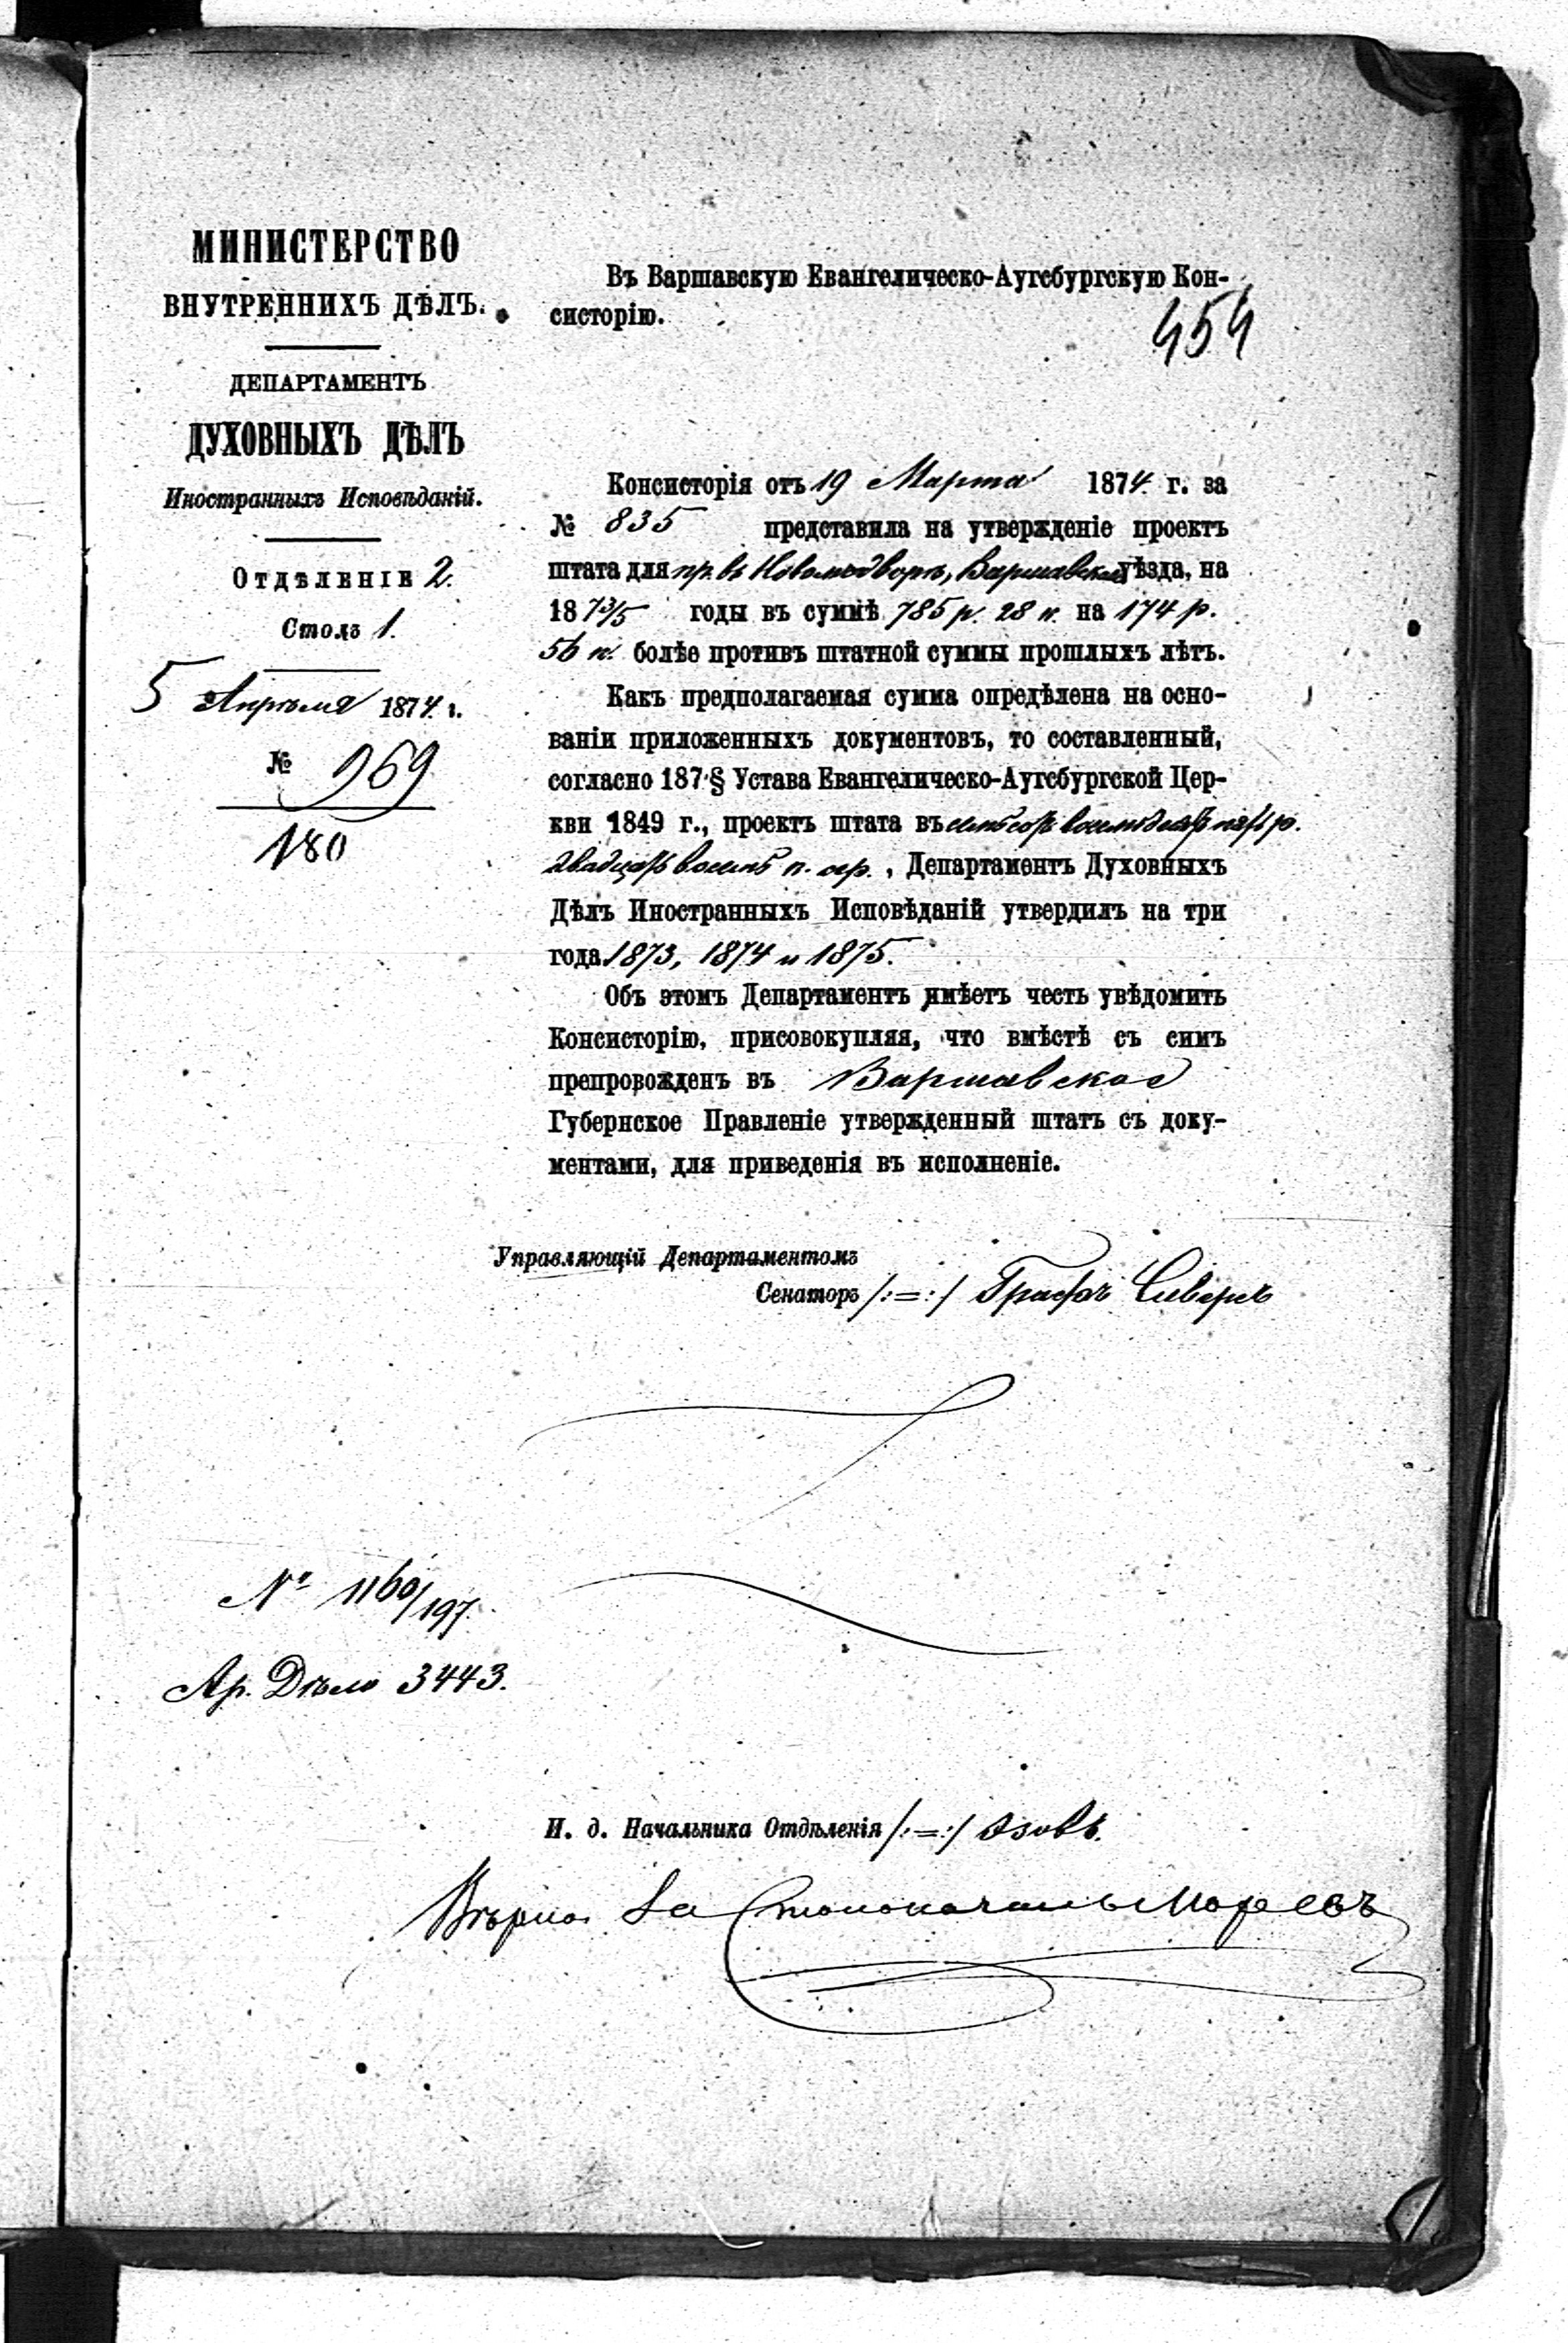 МИНИСТЕРСТВО
ВНУТРЕННИХЪ ДѢЛЪ.
ДЕПАРТАМЕНТЪ
ДУХОВНЫХЪ ДѢЛЪ
Иностранныхъ Исповѣданій.
ОТДѢЛЕНІЕ 2.
Столъ 1.
5 Апрѣля 1874 г.
№ 969
180
Въ Варшавскую Евангелическо-Аугсбургскую Кон-
систорію.
454
Консисторія отъ 19 Марта 1874 г. за
№ 835 представила на утвержденіе проектъ
штата для пр. въ Новомъ дворѣ, Варшавскаго уѣзда, на
18 73/5 годы въ суммѣ 785 р. 28 к. на 174 р.
56 к. болѣе противъ штатной суммы прошлыхъ лѣтъ.
Какъ предполагаемая сумма опредѣлена на осно-
ваніи приложенныхъ документовъ, то составленный,
согласно 187 § Устава Евангелическо-Аугсбургской Цер-
кви 1849 г., проектъ штата въ семьсотъ восемьдесятъ пять р.
двадцать восемь к. сер., Департаментъ Духовныхъ
Дѣлъ Иностранныхъ Исповѣданій утвердилъ на три
года 1873, 1874 и 1875.
Объ этомъ Департаментъ имѣетъ честь увѣдомить
Консисторію, присовокупляя, что вмѣстѣ съ симъ
препровожденъ въ Варшавское
Губернское Правленіе утвержденный штатъ съ доку-
ментами, для приведенія въ исполненіе.
Управляющій Департаментомъ
Сенаторъ /:=:/ Графъ Сиверсъ
№ 1160/197.
Ар. Дѣло 3443.
И. д. Начальника Отдѣленія /:=:/ Азовъ.
Вѣрно За Столоначальн